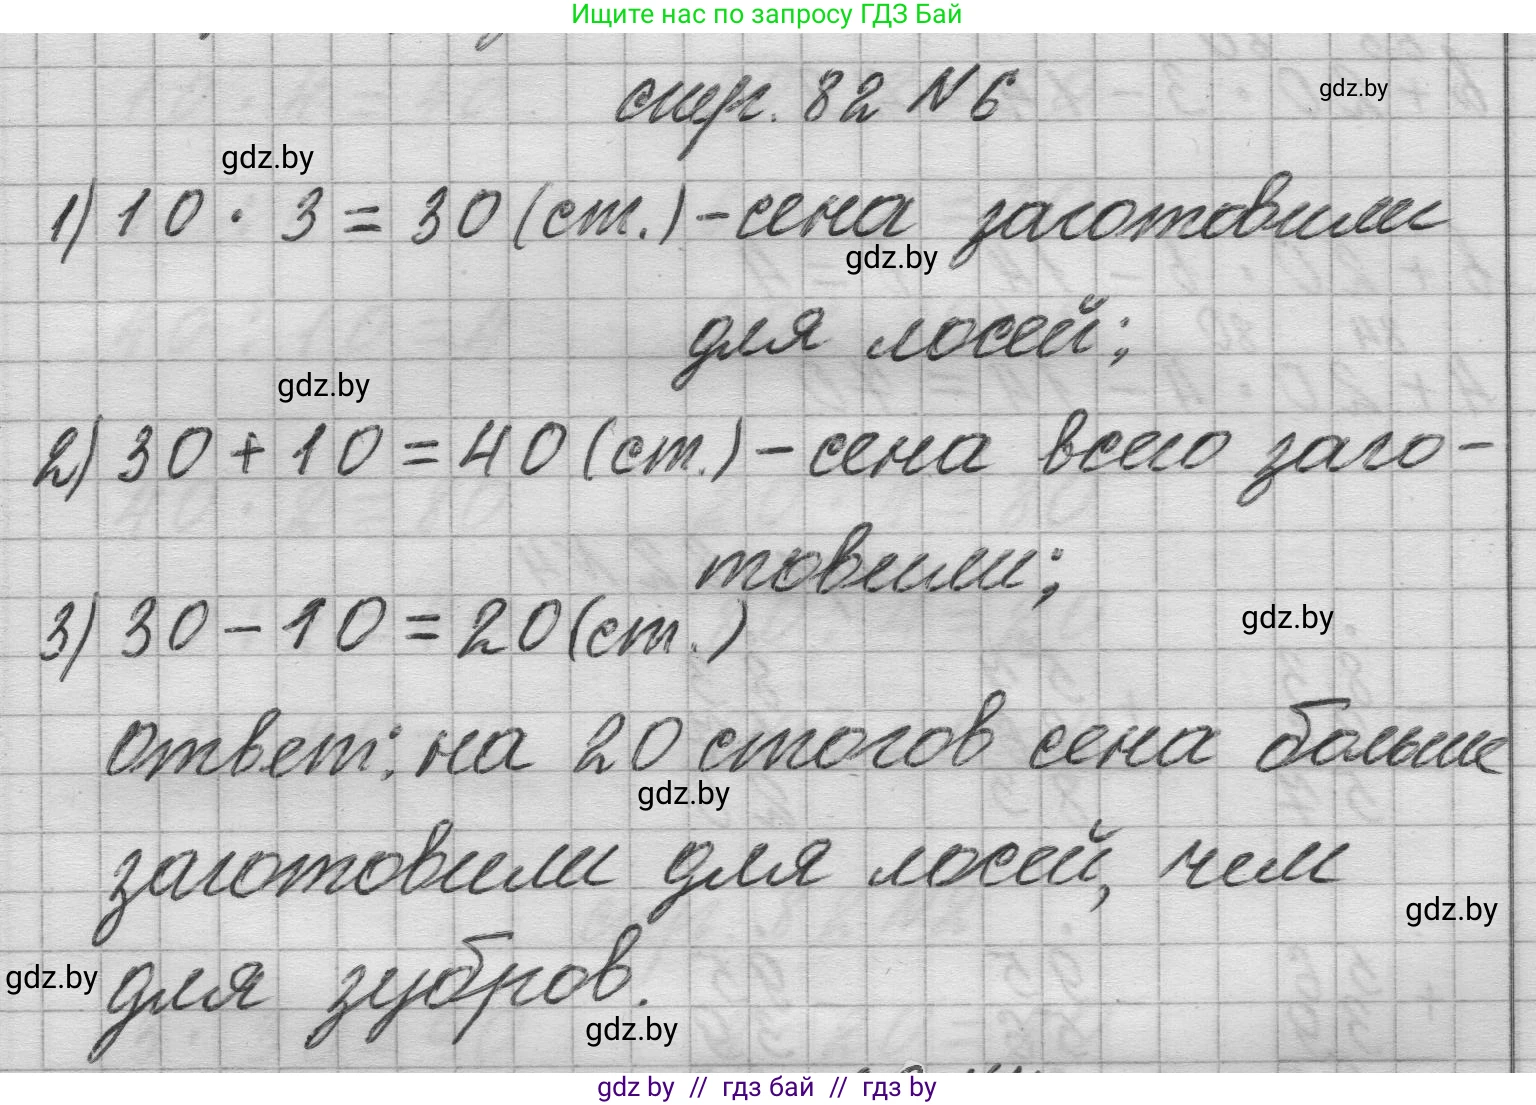 Ищите нас по запросу ГДЗ Бай
стр. 82 N 6
gdz.by
gdz.by
1) 10 · 3 = 30 (ст.) - сена заготовили
gdz.by
для лосей;
gdz.by
2) 30 + 10 = 40 (ст.) - сена всего заго-
товили;
3) 30 - 10 = 20 (ст.)
gdz.by
Ответ: на 20 стогов сена больше
gdz.by
заготовили для лосей, чем
gdz.by
gdz.by
для зубров.
gdz.by
gdz by // гдз бай // гдз by